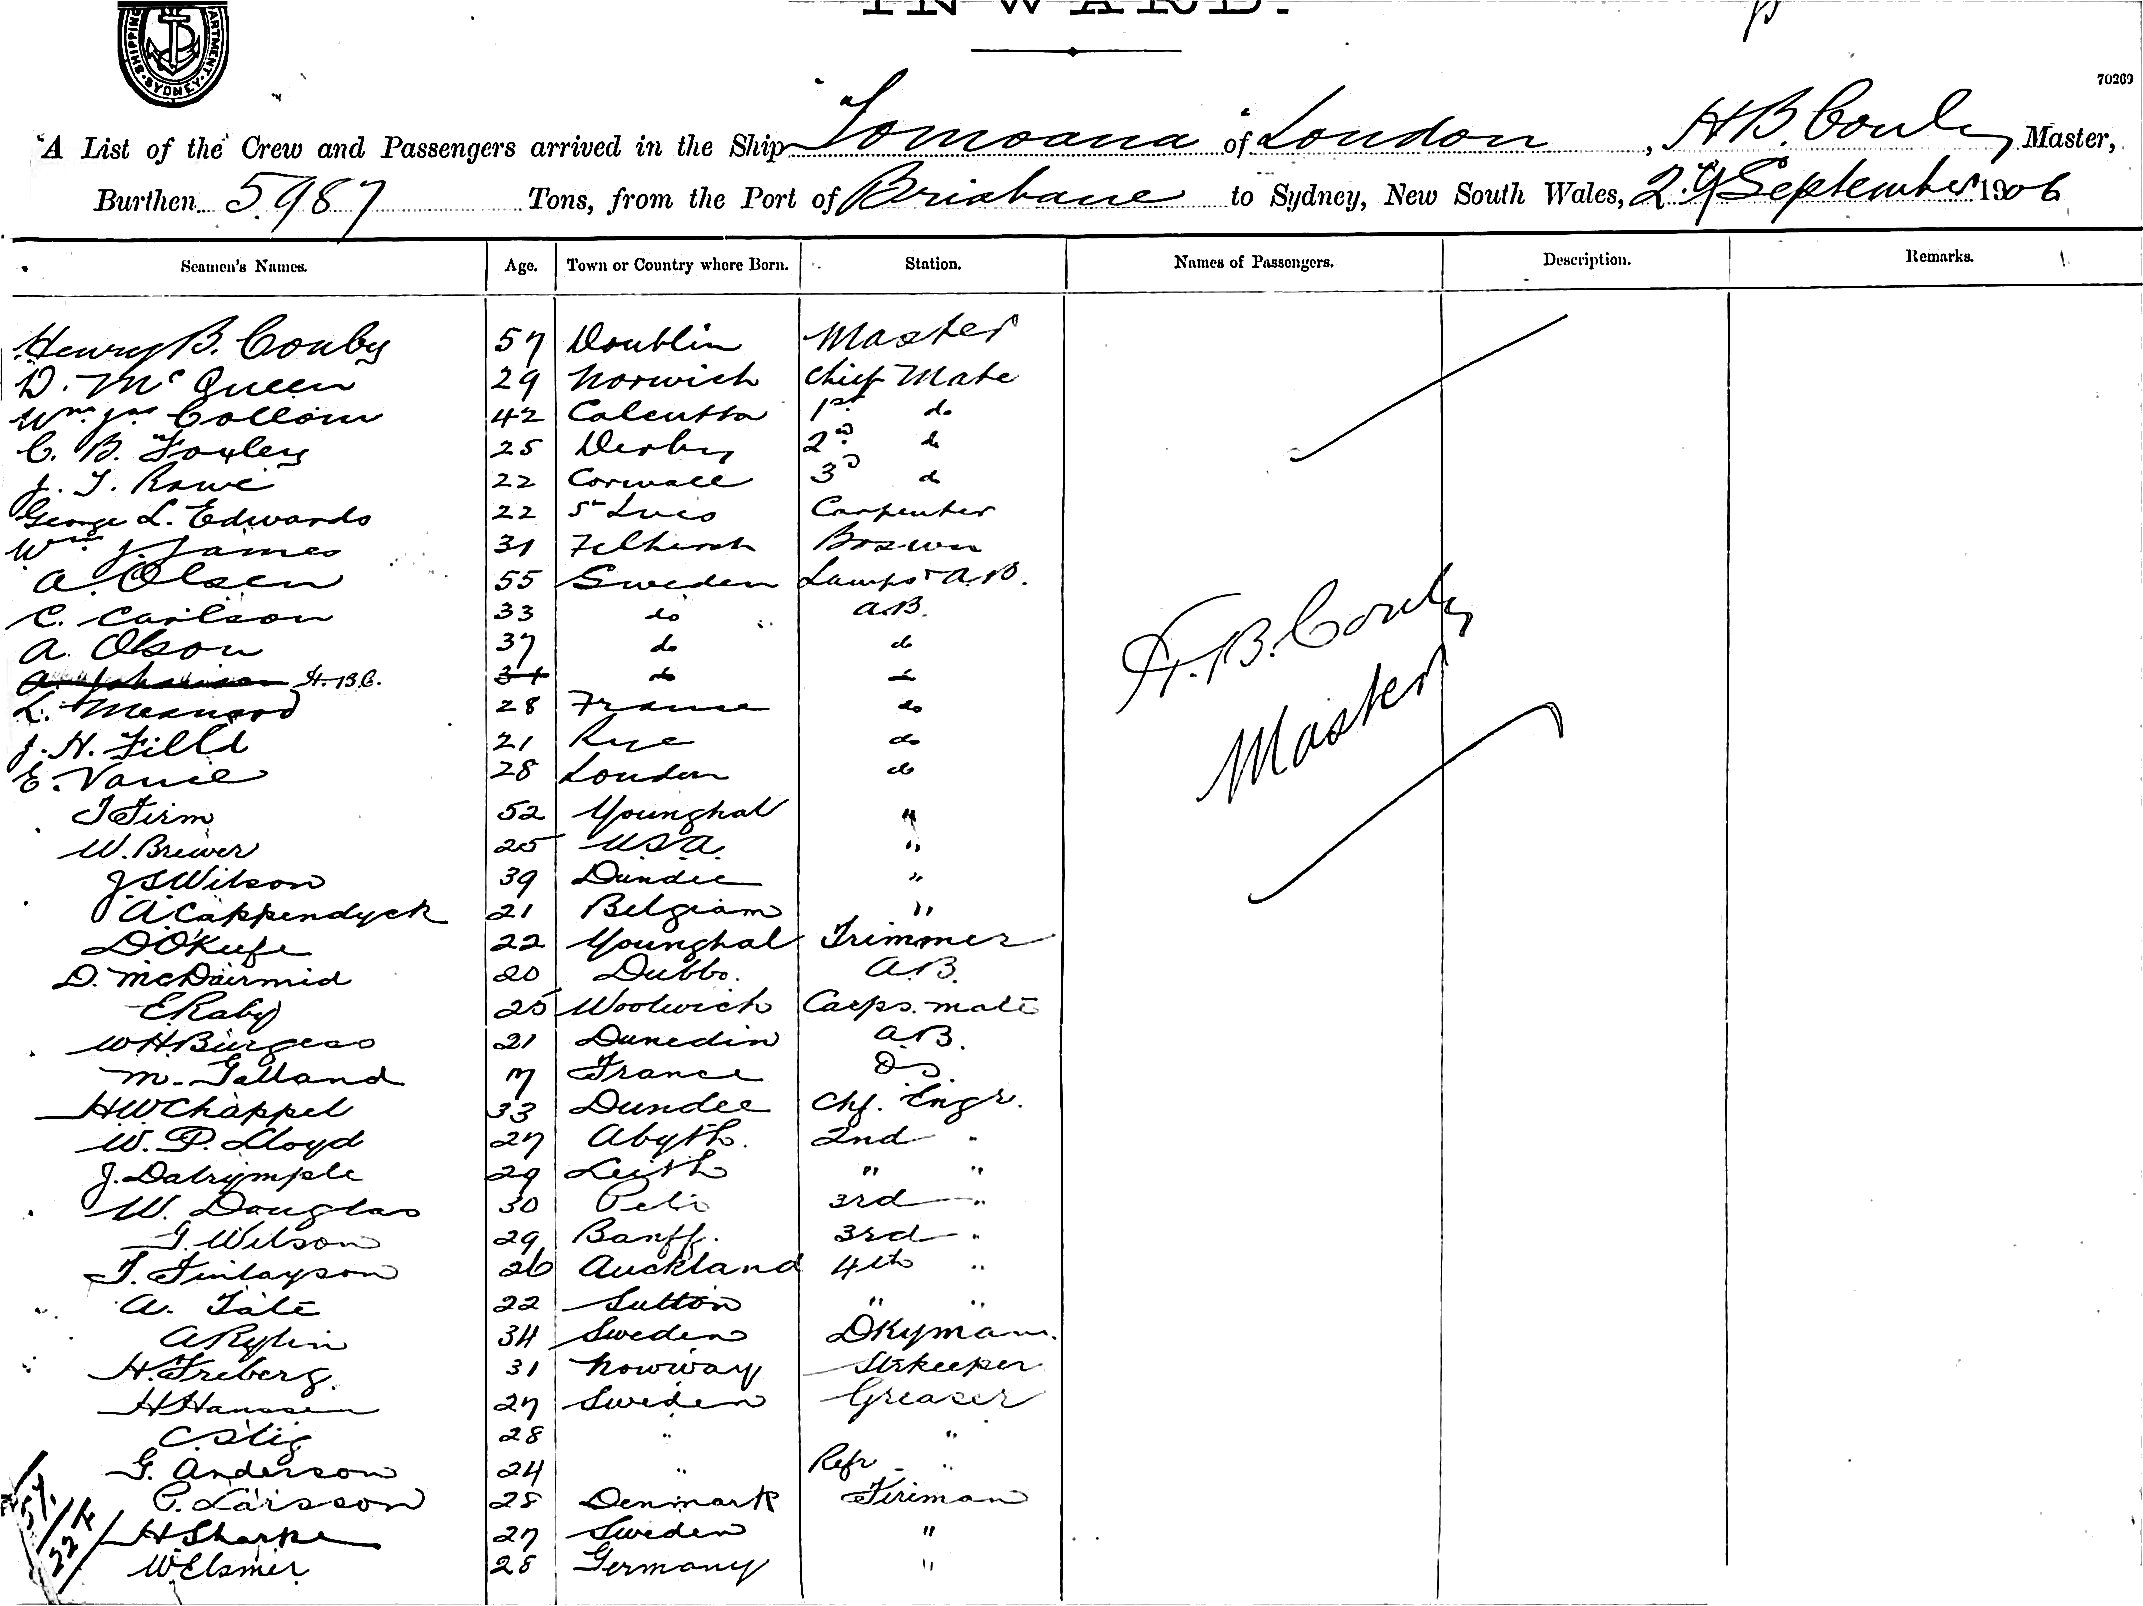 INWARD.
SHIPPING DEPARTMENT SYDNEY
70209
A List of the Crew and Passengers arrived in the Ship "Tomoana" of London, H B. Conby Master,
Burthen 5.987 Tons, from the Port of Brisbane to Sydney, New South Wales, 29 September 1906
Seamen's Names. Age. Town or Country where Born. Station. Names of Passengers. Description. Remarks.
Henry B. Conby 57 Doublin Master
D. McQueen 29 Norwich Chief Mate
Wm. Jas Collom 42 Calcutta 1st do
C. B. Foxley 25 Derby 2nd do
J. T. Rowe 22 Cornwall 3d do
George L. Edwards 22 St Ives Carpenter
Wm J. James 31 Boswn
A. Olsen 55 Sweden Lamps & A.B.
C. Carlson 33 do A.B.
A. Olson 37 do do
A. Johanson H.B.C. 34 do do
L. Mesnard 28 France do
J. H. Filld 21 Rye do
E. Vance 28 London do
T Firm 52 Younghal "
W. Brewer 25 U.S.A. "
J S Wilson 39 Dundee "
A Cappendyck 21 Belgiam "
D O'Kufe 22 Younghal Trimmer
D. McDairmid 20 Dubbo. A.B.
E Raby 25 Woolwich Carps. mate
W H Burgess 21 Dunedin A.B.
M. Galland 17 France O S
H W Chappel 33 Dundee Chf. Engr.
W. P. Lloyd 27 Abyth. 2nd "
J. Dalrymple 29 Leith " "
W. Douglas 30 3rd "
J. Wilson 29 Banff. 3rd "
T. Finlayson 26 Auckland 4th "
A. Tate 22 Sutton " "
A Rylin 34 Sweden Dkyman.
H. Freberg. 31 Norway Strkeeper
H Hanssen 27 Sweden Greaser
C Stig 28 " "
G. Anderson 24 " Refr - "
C. Larsson 28 Denmark Fireman
H Sharpe 27 Sweden "
W Elsmer 28 Germany "
H. B. Conby
Master